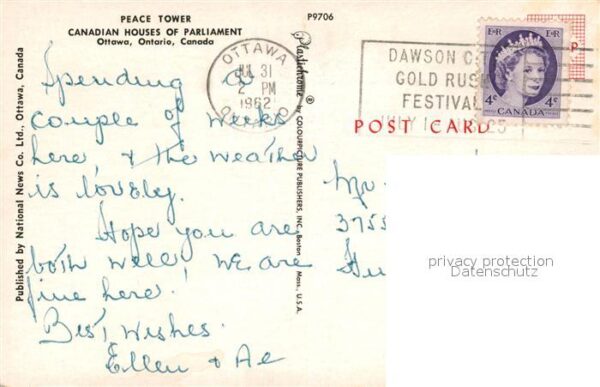 PEACE TOWER
CANADIAN HOUSES OF PARLIAMENT
Ottawa, Ontario, Canada
P9706
Published by National News Co. Ltd., Ottawa, Canada
Plastichrome ® BY COLOURPICTURE PUBLISHERS, INC., Boston, Mass., U.S.A.
OTTAWA
JUL 31
2 PM
1962
ONTARIO
DAWSON C
GOLD RUS
FESTIVA
JULY 1
EⅡR EⅡR
4¢ 4¢
CANADA
POST CARD
Spending a
couple of weeks
here & the weather
is lovely.
Hope you are
both well, we are
fine here.
Best Wishes.
Ellen & Al
Mr
3755
privacy protection
Datenschutz